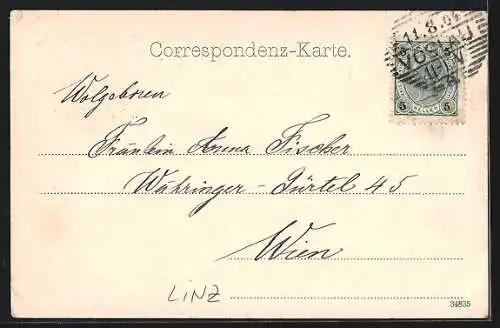 Correspondenz-Karte.
11.8.04
VÖSLAU
5 HELLER 5
Wolgeboren
Fräulein Anna Fischer
Währinger-Gürtel 45
Wien
LINZ
34835